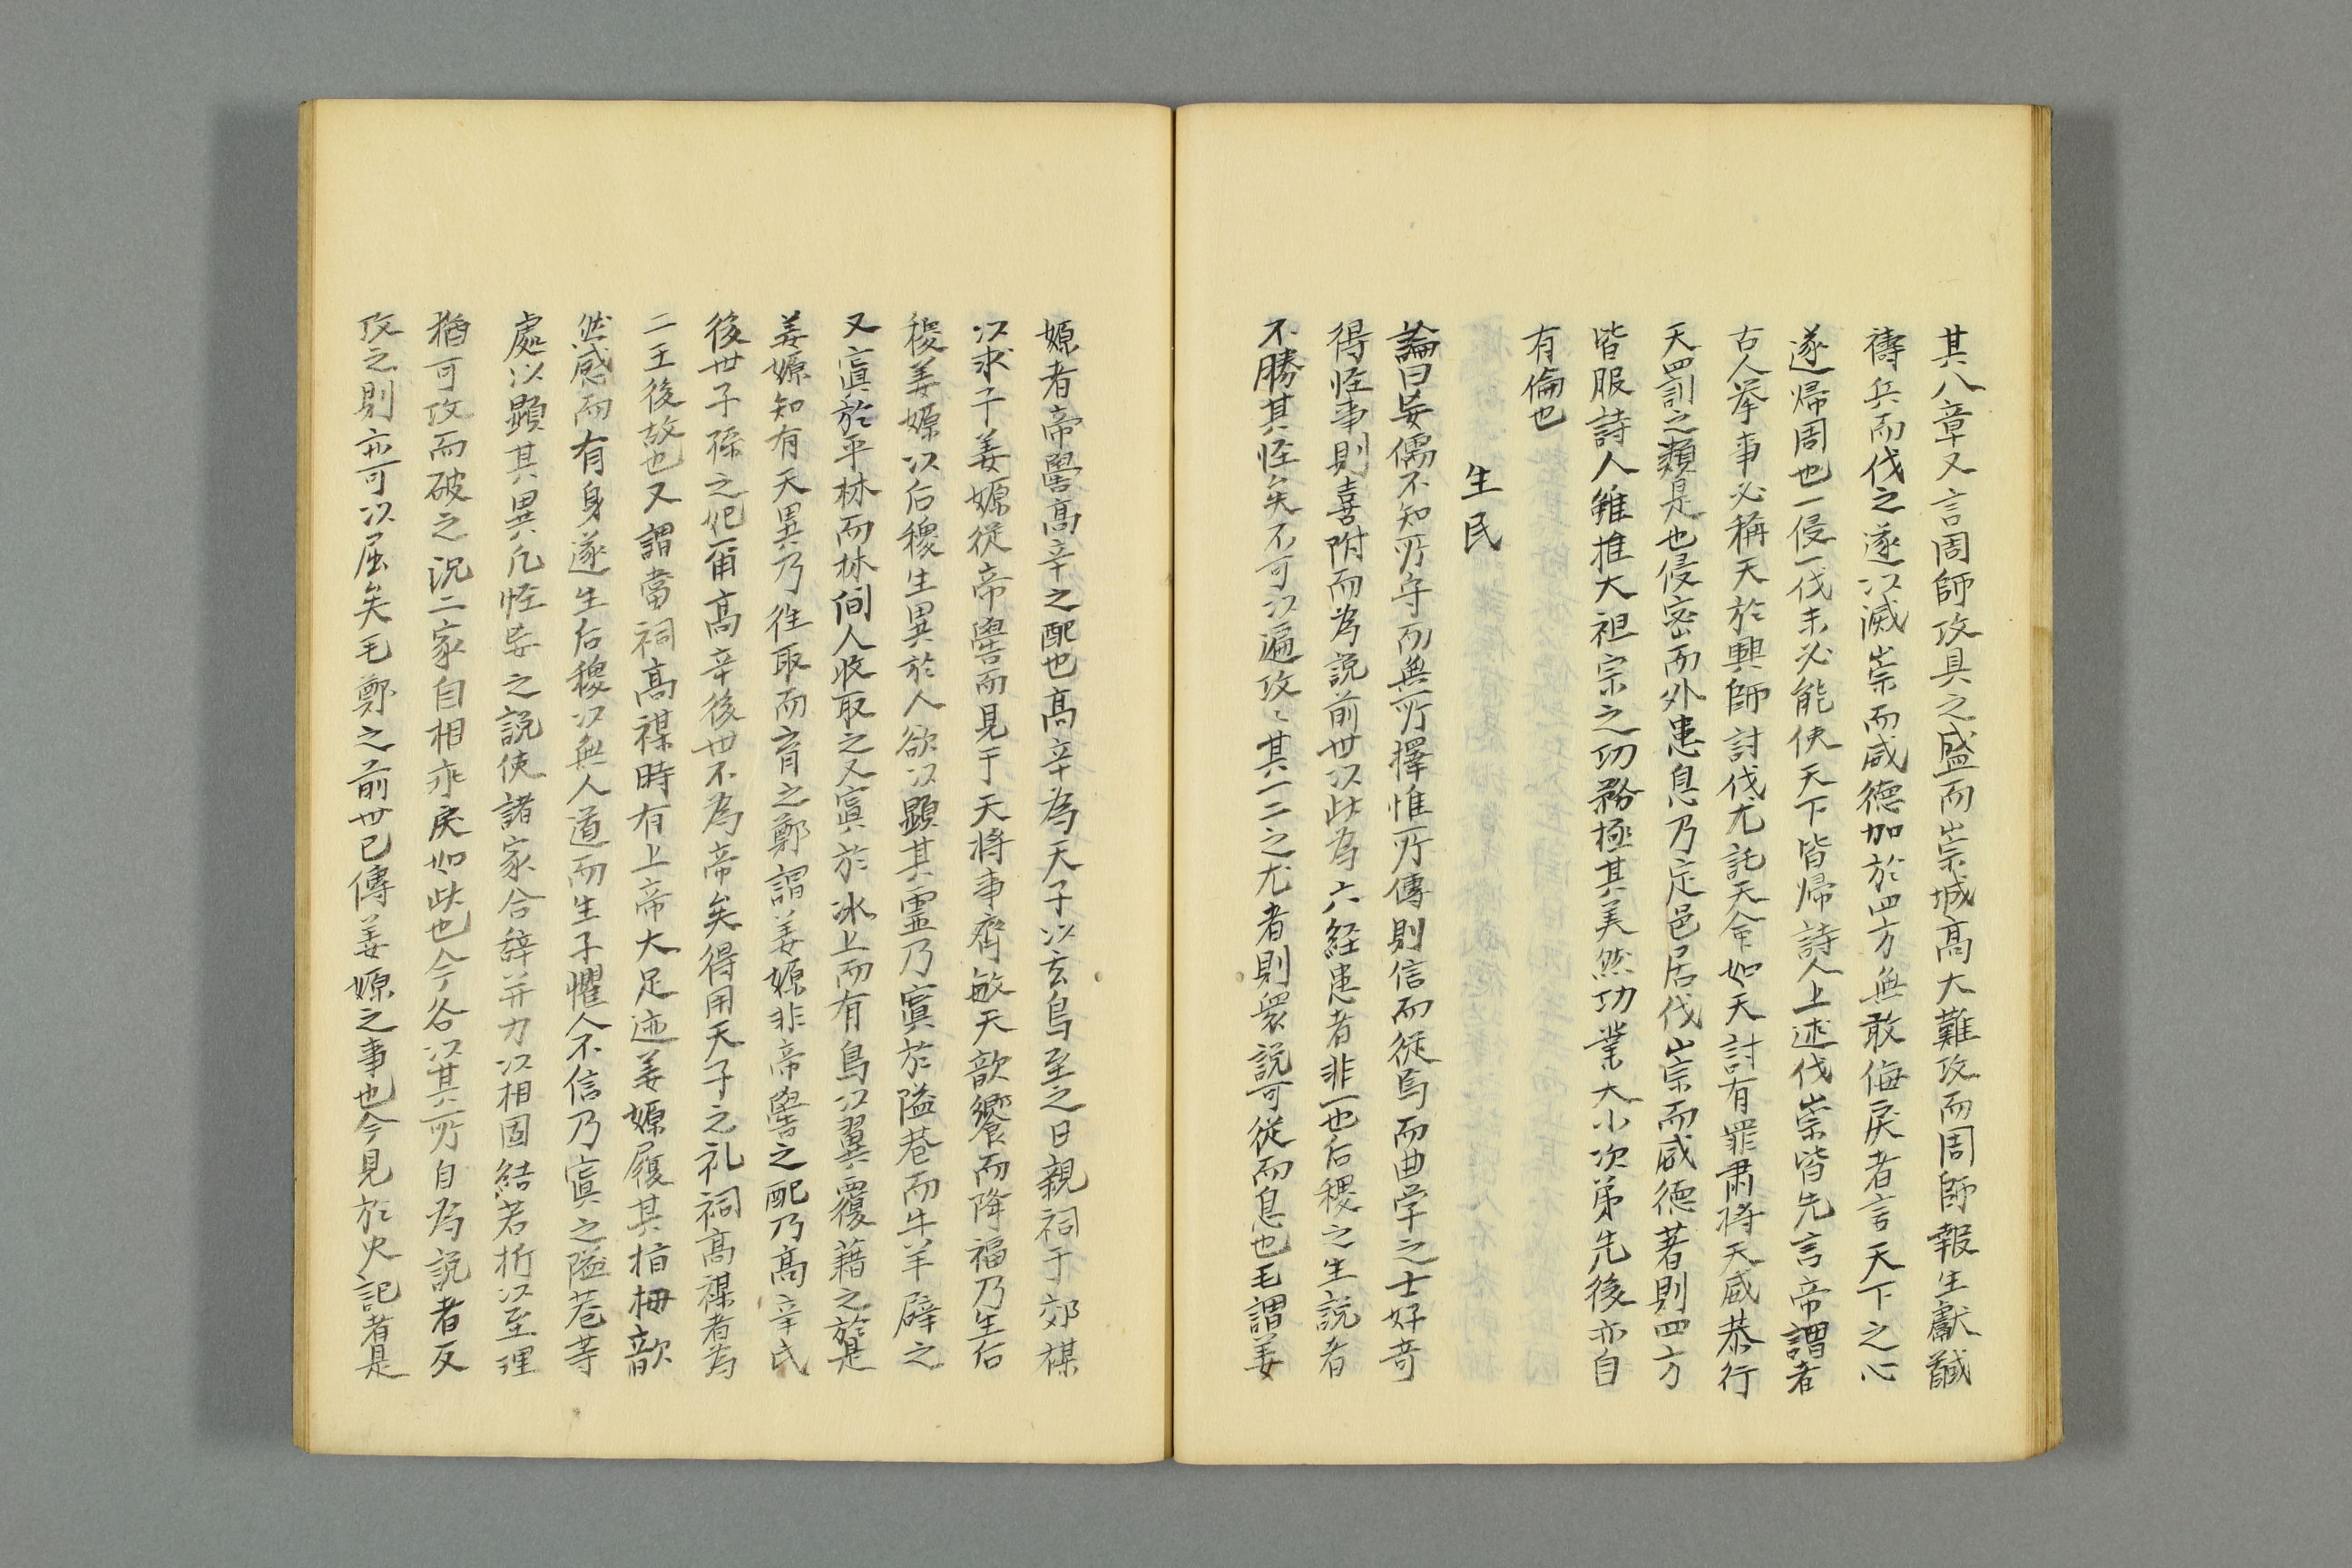 其八章又言周師攻具之盛而崇城高大難攻而周師報生獻馘
禱兵而伐之遂以滅崇而威德加於四方無敢侮戾者言天下之心
遂帰周也一侵一伐未必能使天下皆帰詩人上述伐崇皆先言帝謂者
古人挙事必稱天於興師討伐尤託天命如天討有罪肅将天威恭行
天罰之類是也侵密而外患息乃定邑居伐崇而威德著則四方
皆服詩人雖推大祖宗之功務極其美然功業大小次第先後亦自
有倫也
生民
論曰妄儒不知所守而無所擇惟所傳則信而從焉而曲学之士好奇
得怪事則喜附而為説前世以此為六経患者非一也后稷之生説者
不勝其怪矣不可以遍攻〻其一二之尤者則衆説可從而息也毛謂姜
嫄者帝嚳高辛之配也高辛為天子以玄鳥至之日親祠于郊禖
以求子姜嫄従帝嚳而見于天将事齊敏天歆饗而降福乃生后
稷姜嫄以后稷生異於人欲以顕其霊乃寘於隘巷而牛羊辟之
又寘於平林而林间人收取之又寘於冰上而有鳥以翼覆藉之於是
姜嫄知有天異乃徃取而育之鄭謂姜嫄非帝嚳之配乃高辛氏
後世子孫之妃甫高辛後世不為帝矣得用天子之礼祠高禖者為
二王後故也又謂當祠高禖時有上帝大足迹姜嫄履其指拇歆
然感而有身遂生后稷以無人道而生子懼人不信乃寘之隘巷等
處以顕其異凡怪妄之説使諸家合辞并力以相固結若折以至理
猶可攻而破之況二家自相乖戻如此也今各以其所自為説者反
攻之則亦可以屈矣毛鄭之前世已傳姜嫄之事也今見於史記者是